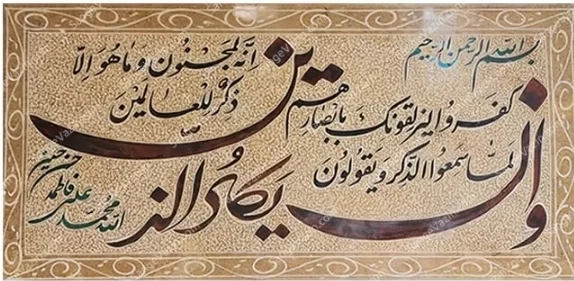 بسم الله الرحمن الرحيم
وان يكاد الذين
كفروا ليزلقونك بابصارهم
لما سمعوا الذكر ويقولون
انه لمجنون وما هو الا
ذكر للعالمين
الله محمد
علي فاطمه
حسن حسين